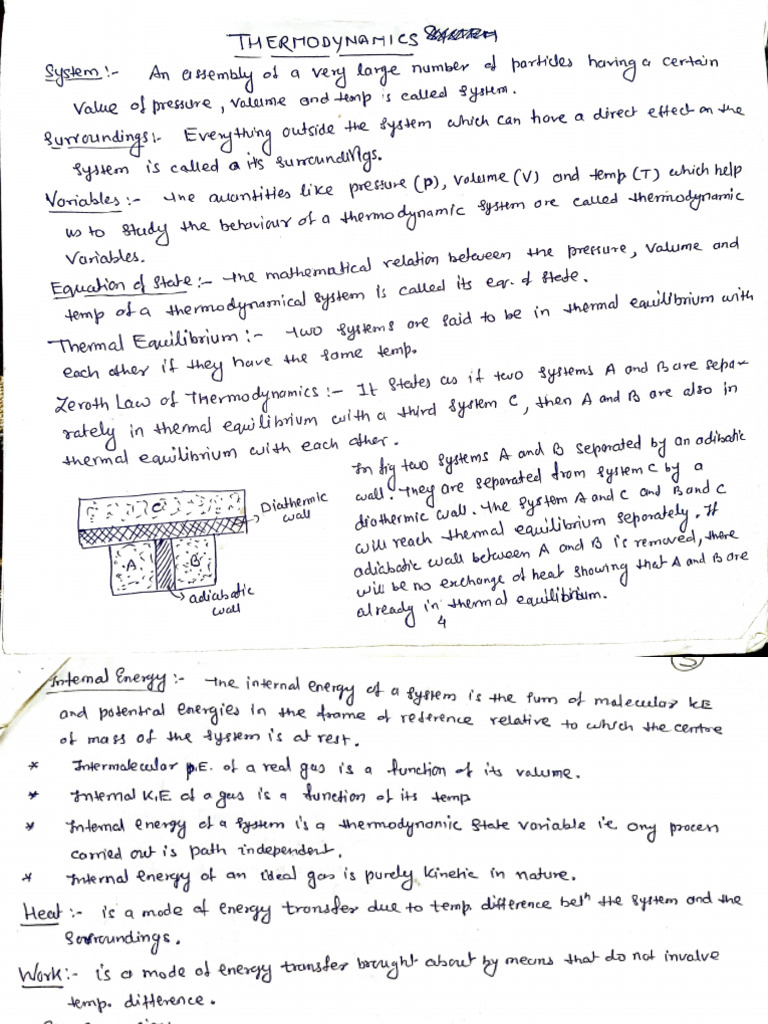 THERMODYNAMICS
System :- An assembly of a very large number of particles having a certain
value of pressure, volume and temp is called system.
Surroundings:- Everything outside the system which can have a direct effect on the
system is called its surroundings.
Variables :- The quantities like pressure (P), volume (V) and temp (T) which help
us to study the behaviour of a thermodynamic system are called thermodynamic
variables.
Equation of state :- The mathematical relation between the pressure, volume and
temp of a thermodynamical system is called its eqr. of state.
Thermal Equilibrium :- Two systems are said to be in thermal equilibrium with
each other if they have the same temp.
Zeroth Law of Thermodynamics :- It states as if two systems A and B are sepa-
rately in thermal equilibrium with a third system C, then A and B are also in
thermal equilibrium with each other.
In fig two systems A and B separated by an adibatic
wall. They are separated from system C by a
diothermic wall. The system A and C and B and C
will reach thermal equilibrium seporately. If
adiabatic wall between A and B is removed, there
will be no exchange of heat showing that A and B are
already in thermal equilibrium.
C
Diathermic
wall
A
B
adiabatic
wall
4
5
Internal Energy :- The internal energy of a system is the sum of molecular KE
and potential energies in the frame of reference relative to which the centre
of mass of the system is at rest.
* Intermolecular P.E. of a real gas is a function of its volume.
* Internal K.E. of a gas is a function of its temp
* Internal energy of a system is a thermodynamic state variable i.e any process
carried out is path independent.
* Internal energy of an ideal gas is purely kinetic in nature.
Heat :- is a mode of energy transfer due to temp. difference betn the system and the
Sorroundings.
Work :- is a mode of energy transfer brought about by means that do not involve
temp. difference.